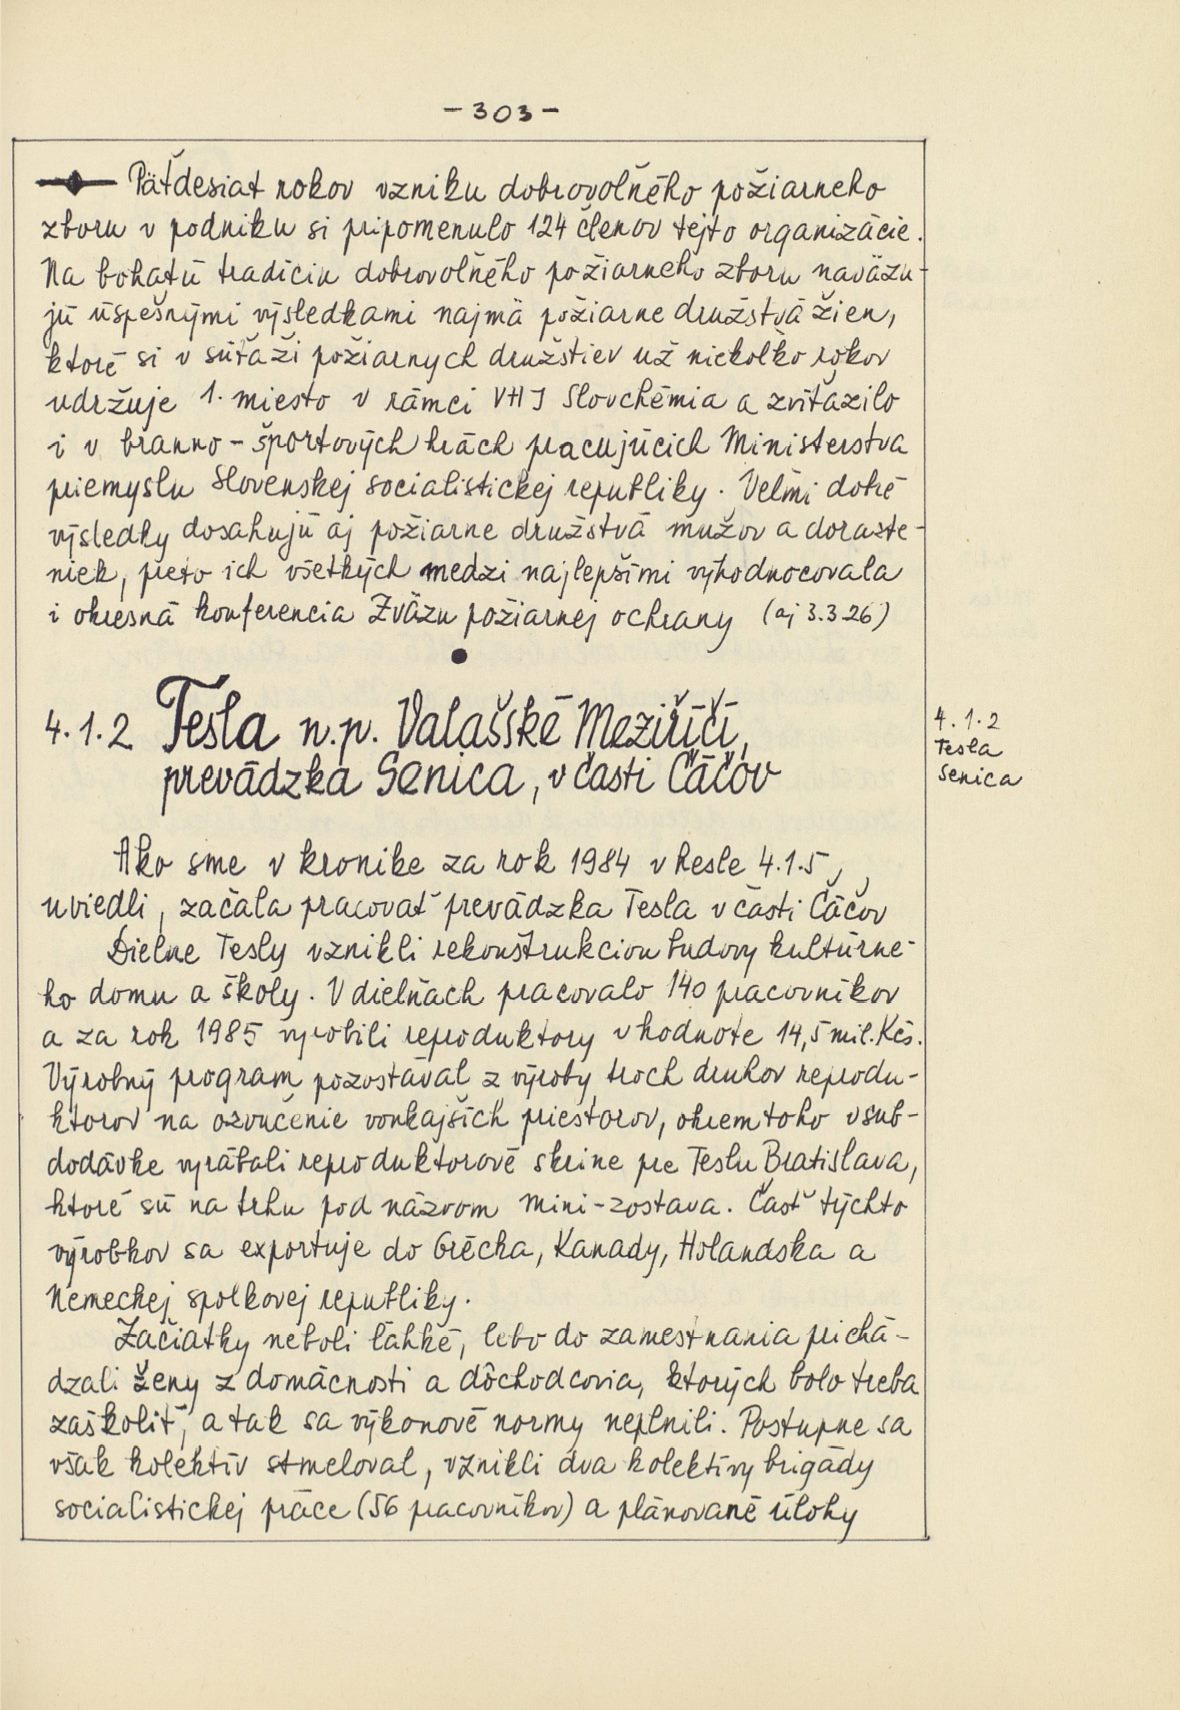 - 303 -
Päťdesiat rokov vzniku dobrovoľného požiarneho
zboru v podniku si pripomenulo 124 členov tejto organizácie.
Na bohatú tradíciu dobrovoľného požiarneho zboru naväzu-
jú úspešnými výsledkami najmä požiarne družstvá žien,
ktoré si v súťaži požiarnych družstiev už niekoľko rokov
udržuje 1. miesto v rámci VHJ Slovchémia a zvíťazilo
i v branno-športových hrách pracujúcich Ministerstva
priemyslu Slovenskej socialistickej republiky. Veľmi dobré
výsledky dosahujú aj požiarne družstvá mužov a doraste-
niek, preto ich všetkých medzi najlepšími vyhodnocovala
i okresná konferencia Zväzu požiarnej ochrany (aj 3.3.26)
4.1.2 Tesla n.p. Valašské Meziříčí,
prevádzka Senica, v časti Čáčov
4.1.2
Tesla
Senica
Ako sme v kronike za rok 1984 v hesle 4.1.5,
uviedli, začala pracovať prevádzka Tesla v časti Čáčov
Dielne Tesly vznikli rekonštrukciou budovy kultúrne-
ho domu a školy. V dielňach pracovalo 140 pracovníkov
a za rok 1985 vyrobili reproduktory v hodnote 14,5 mil. Kčs.
Výrobný program pozostával z výroby troch druhov reprodu-
ktorov na ozvučenie vonkajších priestorov, okrem toho v sub-
dodávke vyrábali reproduktorové skrine pre Teslu Bratislava,
ktoré sú na trhu pod názvom Mini-zostava. Časť týchto
výrobkov sa exportuje do Grécka, Kanady, Holandska a
Nemeckej spolkovej republiky.
Začiatky neboli ľahké, lebo do zamestnania prichá-
dzali ženy z domácnosti a dôchodcovia, ktorých bolo treba
zaškoliť, a tak sa výkonové normy neplnili. Postupne sa
však kolektív stmeloval, vznikli dva kolektívy brigády
socialistickej práce (56 pracovníkov) a plánované úlohy